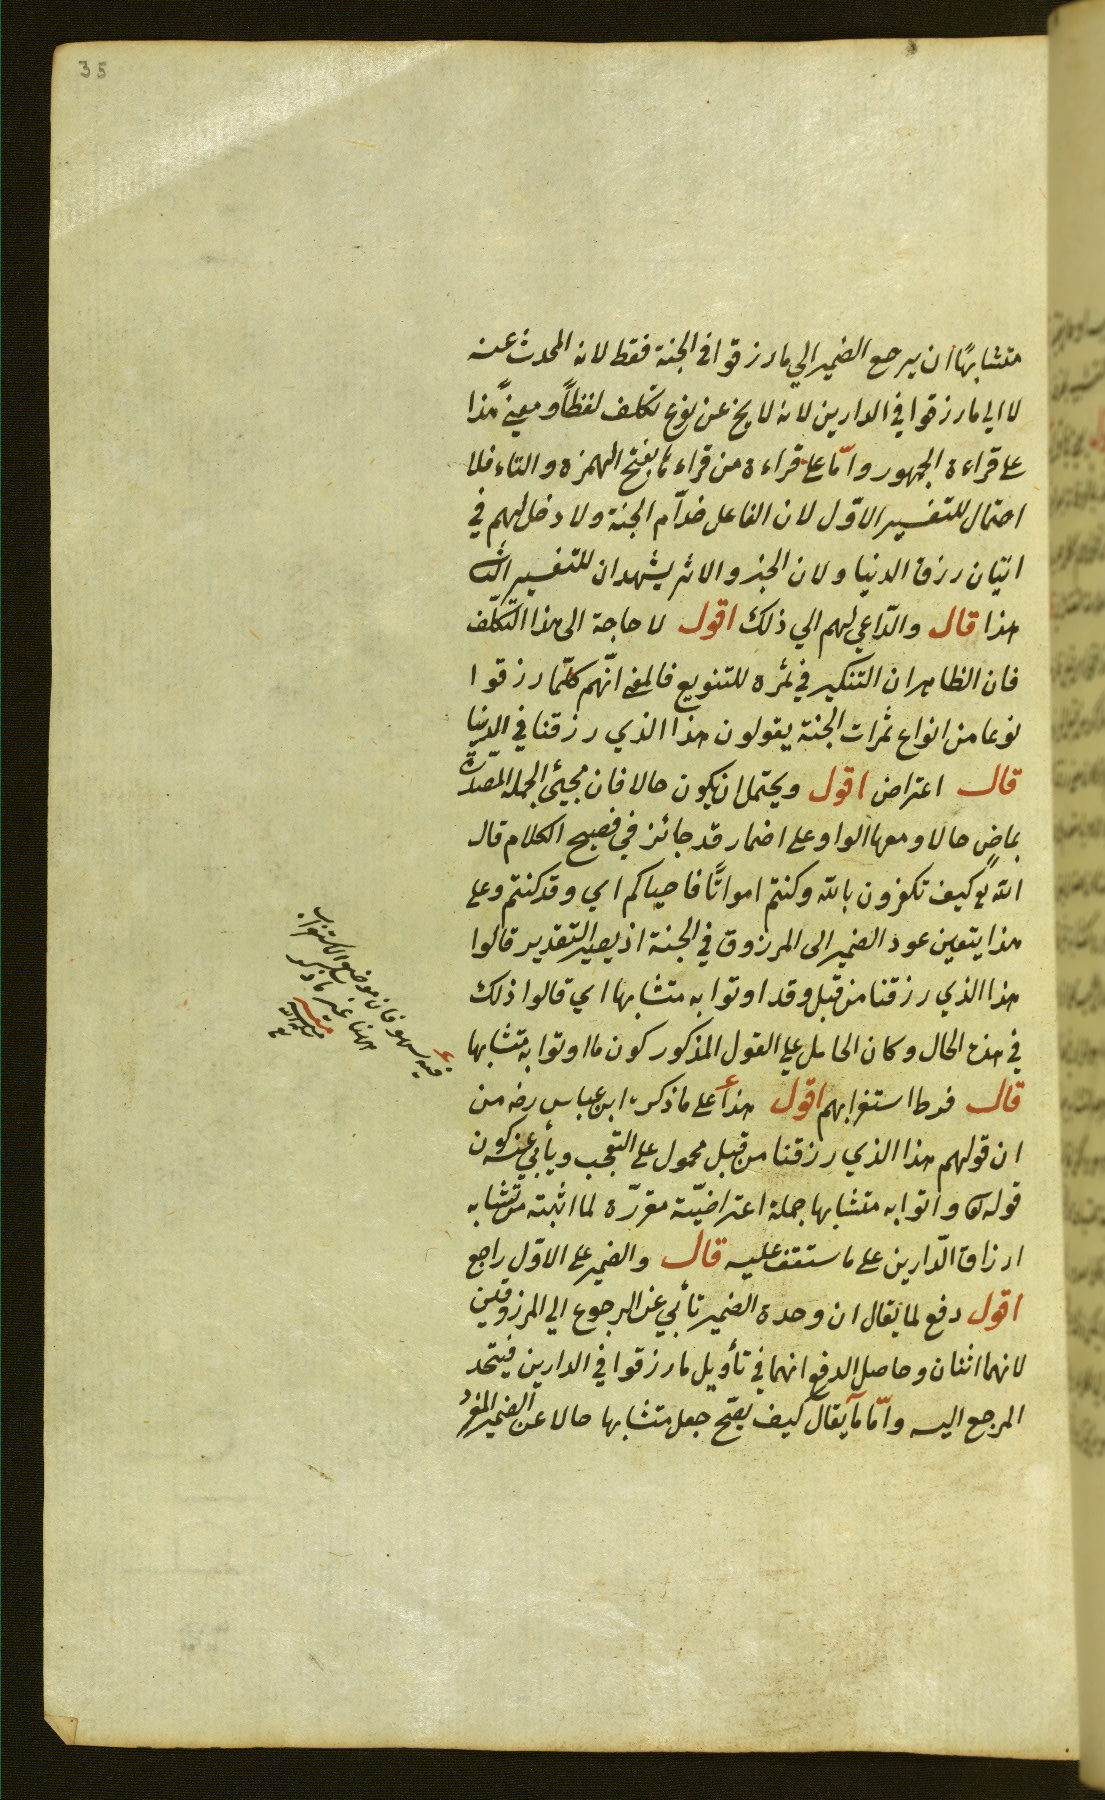 35
متشابهًا ان يرجع الضمير الي ما رزقوا في الجنة فقط لانه المحدث عنه
لا الي ما رزقوا في الدارين لانه لا يخ عن نوع تكلف لفظاً ومعنًي هذا
علي قراءة الجمهور وامّا علي قراءة من قراء بفتح الهمزة والتاء فلا
احتمال للتفسير الاوّل لان الفاعل خدّام الجنة ولا دخل لهم في
اتيان رزق الدنيا ولان الخبر والاثر يشهدان للتفسير الثاني
هذا قال والدّاعي لهم الي ذلك اقول لا حاجة الى هذا التكلّف
فان الظاهر ان التنكير في ثمرة للتنويع فالمعنى انّهم كلّما رزقوا
نوعا من انواع ثمرات الجنة يقولون هذا الذي رزقنا في الدنيا
قال اعتراض اقول ويحتمل ان يكون حالا فان مجيئ الجملة المصدّرة
بماضٍ حالا ومعها الواو علي اضمار قد جائز في فصيح الكلام قال
الله تع كيف تكفرون بالله وكنتم امواتًا فاحياكم اي وقد كنتم وعلي
هذا يتعين عود الضمير الى المرزوق في الجنة اذ يصير التقدير قالوا
هذا الذي رزقنا من قبل وقد اوتوا به متشابها اي قالوا ذلك
في هذه الحال وكان الحامل علي القول المذكور كون ما اوتوا به متشابها
قال فرط استغرابهم اقول هذا علي ما ذكره ابن عباس رضه من
ان قولهم هذا الذي رزقنا من قبل محمول علي التعجب ويأبي عنه كون
قوله واتوا به متشابها جملة اعتراضيّة مقرّرة لما اثبته من تشابه
ارزاق الدّارين علي ما ستقف عليه قال والضمير علي الاوّل راجع
اقول دفع لما يقال ان وحدة الضمير تأبي عن الرجوع الي المرزوقين
لانهما اثنان وحاصل الدفع انهما في تأويل ما رزقوا في الدارين فيتحد
المرجع اليه وامّا ما يقال كيف يصّح جعل متشابها حالا عن الضمير المفرد
فيه سهو فان موضع الاستغراب
ههنا غير ما ذكر